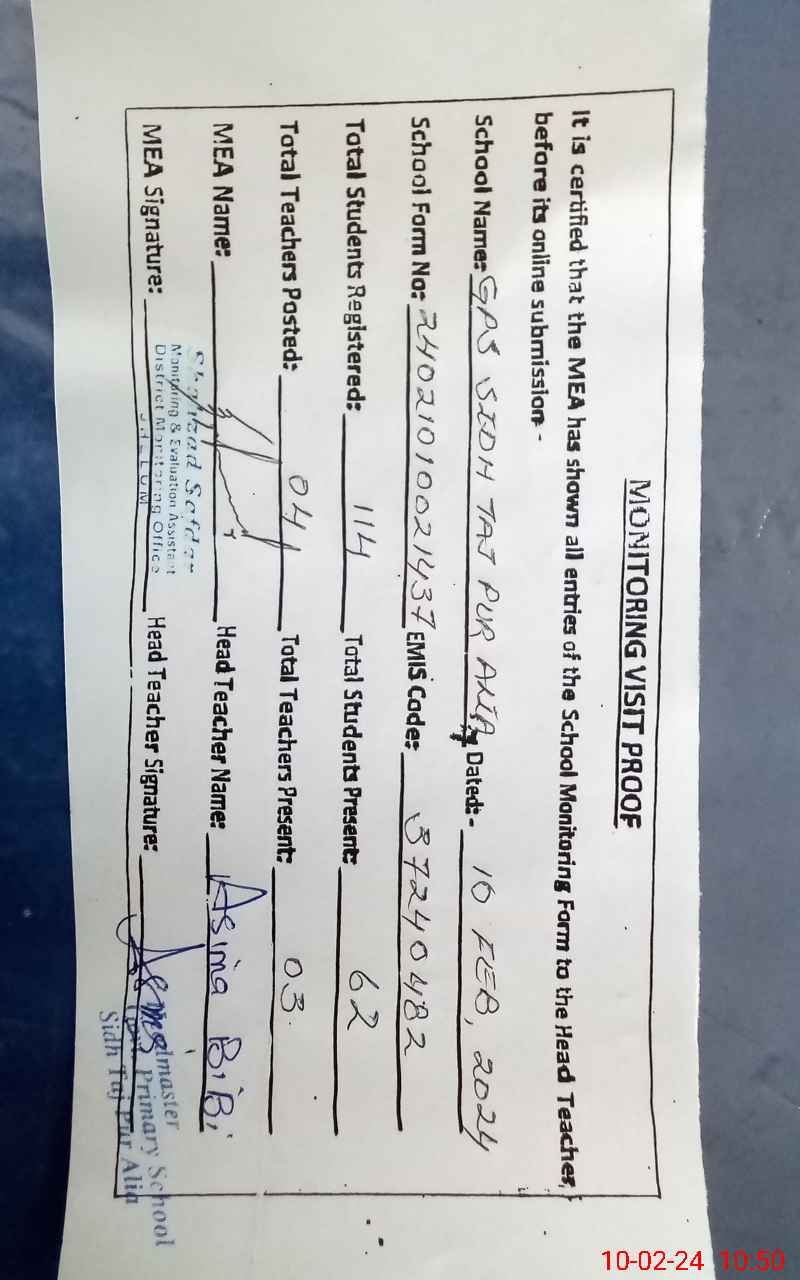 MONITORING VISIT PROOF
It is certified that the MEA has shown all entries of the School Monitoring Form to the Head Teacher,
before its online submission -
School Name: GPS SIDH TAJ PUR ALIA, Dated:- 10 FEB, 2024
School Form No: 24021010021437 EMIS Code: 37240482
Total Students Registered: 114 Total Students Present: 62
Total Teachers Posted: 04 Total Teachers Present: 03
MEA Name: Head Teacher Name: Asima BiBi
MEA Signature: Head Teacher Signature:
Shahzad Safdar
Monitoring & Evaluation Assistant
District Monitoring Office
JHELUM
Primary School
Sidh Taj Pur Alia
10-02-24 10:50